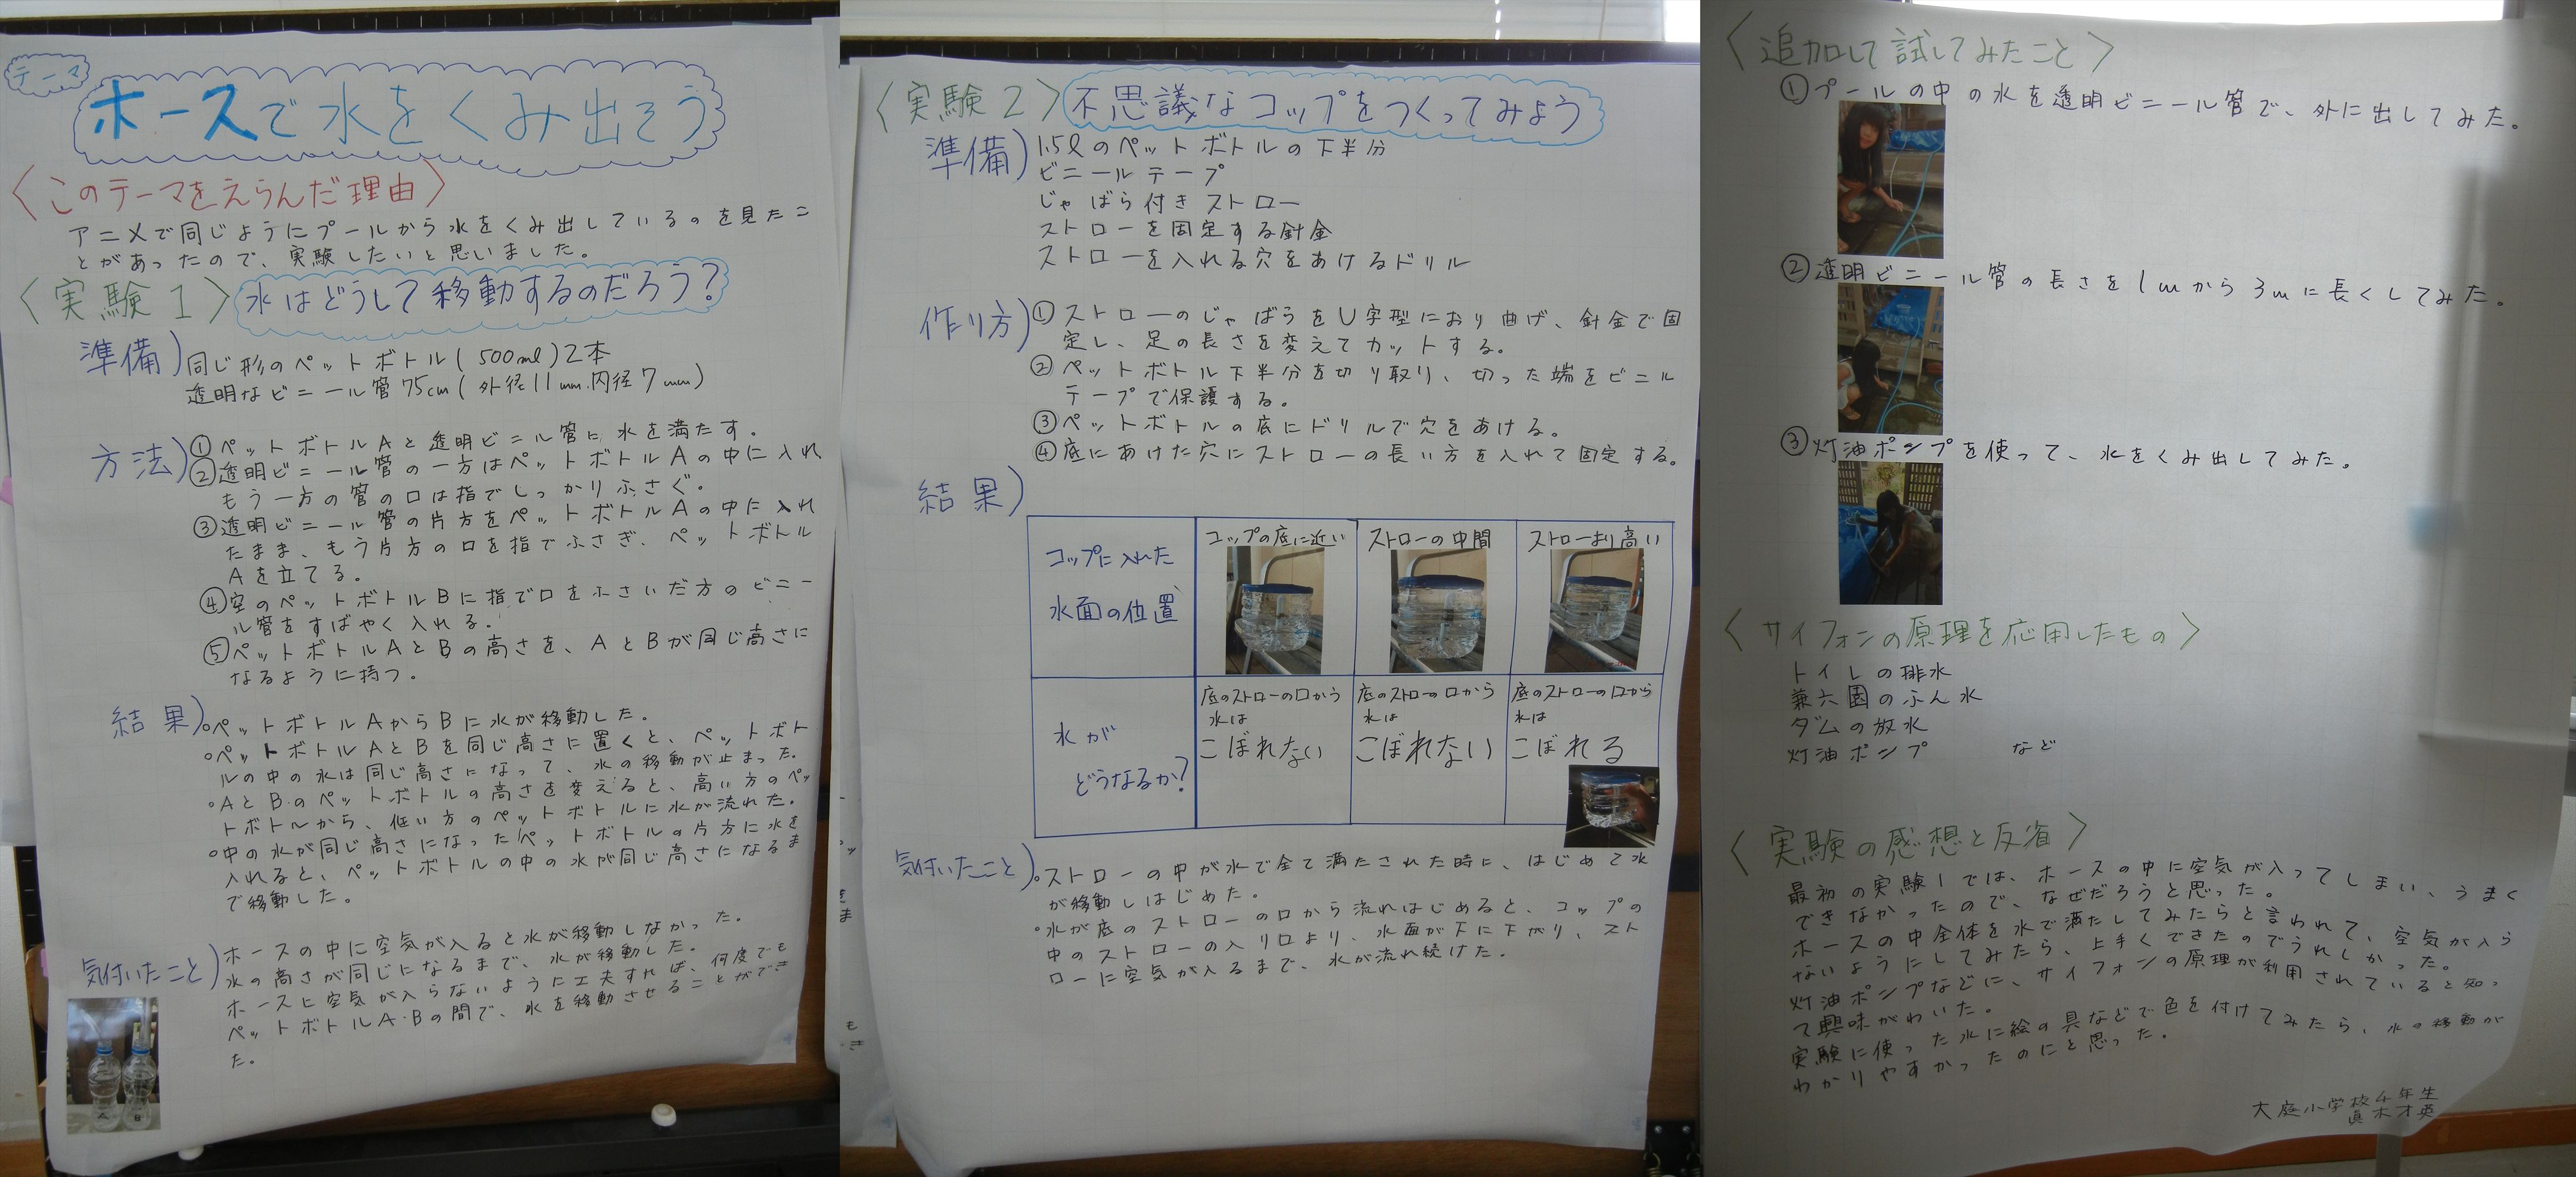 テーマ
ホースで水をくみ出そう
〈このテーマをえらんだ理由〉
アニメで同じようにプールから水をくみ出しているのを見たこ
とがあったので、実験したいと思いました。
〈実験1〉水はどうして移動するのだろう?
準備)同じ形のペットボトル(500ml)2本
透明なビニール管75cm(外径11mm.内径7mm)
方法)①ペットボトルAと透明ビニール管に水を満たす。
②透明ビニール管の一方はペットボトルAの中に入れ
もう一方の管の口は指でしっかりふさぐ。
③透明ビニール管の片方をペットボトルAの中に入れ
たまま、もう片方の口を指でふさぎ、ペットボトル
Aを立てる。
④空のペットボトルBに指で口をふさいだ方のビニー
ル管をすばやく入れる。
⑤ペットボトルAとBの高さを、AとBが同じ高さに
なるように持つ。
結果)○ペットボトルAからBに水が移動した。
○ペットボトルAとBを同じ高さに置くと、ペットボト
ルの中の水は同じ高さになって、水の移動が止まった。
○AとBのペットボトルの高さを変えると、高い方のペッ
トボトルから、低い方のペットボトルに水が流れた。
○中の水が同じ高さになったペットボトルの片方に水を
入れると、ペットボトルの中の水が同じ高さになるま
で移動した。
気付いたこと)ホースの中に空気が入ると水が移動しなかった。
水の高さが同じになるまで、水が移動した。
ホースに空気が入らないように工夫すれば、何度でも
ペットボトルA・Bの間で、水を移動させることができ
た。
A B
〈実験2〉不思議なコップをつくってみよう
準備)1.5ℓのペットボトルの下半分
ビニールテープ
じゃばら付きストロー
ストローを固定する針金
ストローを入れる穴をあけるドリル
作り方)①ストローのじゃばらをU字型におり曲げ、針金で固
定し、足の長さを変えてカットする。
②ペットボトル下半分を切り取り、切った端をビニル
テープで保護する。
③ペットボトルの底にドリルで穴をあける。
④底にあけた穴にストローの長い方を入れて固定する。
結果)
コップに入れた
水面の位置
コップの底に近い
ストローの中間
ストローより高い
水が
どうなるか?
底のストローの口から
水は
こぼれない
底のストローの口から
水は
こぼれない
底のストローの口から
水は
こぼれる
気付いたこと)○ストローの中が水で全て満たされた時に、はじめて水
が移動しはじめた。
○水が底のストローの口から流れはじめると、コップの
中のストローの入り口より、水面が下に下がり、スト
ローに空気が入るまで、水が流れ続けた。
〈追加して試してみたこと〉
①プールの中の水を透明ビニール管で、外に出してみた。
②透明ビニール管の長さを1mから3mに長くしてみた。
③灯油ポンプを使って、水をくみ出してみた。
〈サイフォンの原理を応用したもの〉
トイレの排水
兼六園のふん水
ダムの放水
灯油ポンプ など
〈実験の感想と反省〉
最初の実験1では、ホースの中に空気が入ってしまい、うまく
できなかったので、なぜだろうと思った。
ホースの中全体を水で満たしてみたらと言われて、空気が入ら
ないようにしてみたら、上手くできたのでうれしかった。
灯油ポンプなどに、サイフォンの原理が利用されていると知っ
て興味がわいた。
実験に使った水に絵の具などで色を付けてみたら、水の移動が
わかりやすかったのにと思った。
大庭小学校4年生